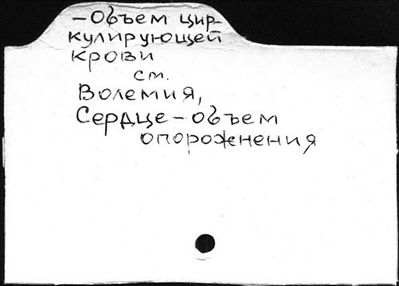 -Объем цир-
кулирующей
крови
см.
Волемия,
Сердце-объем
опорожнения